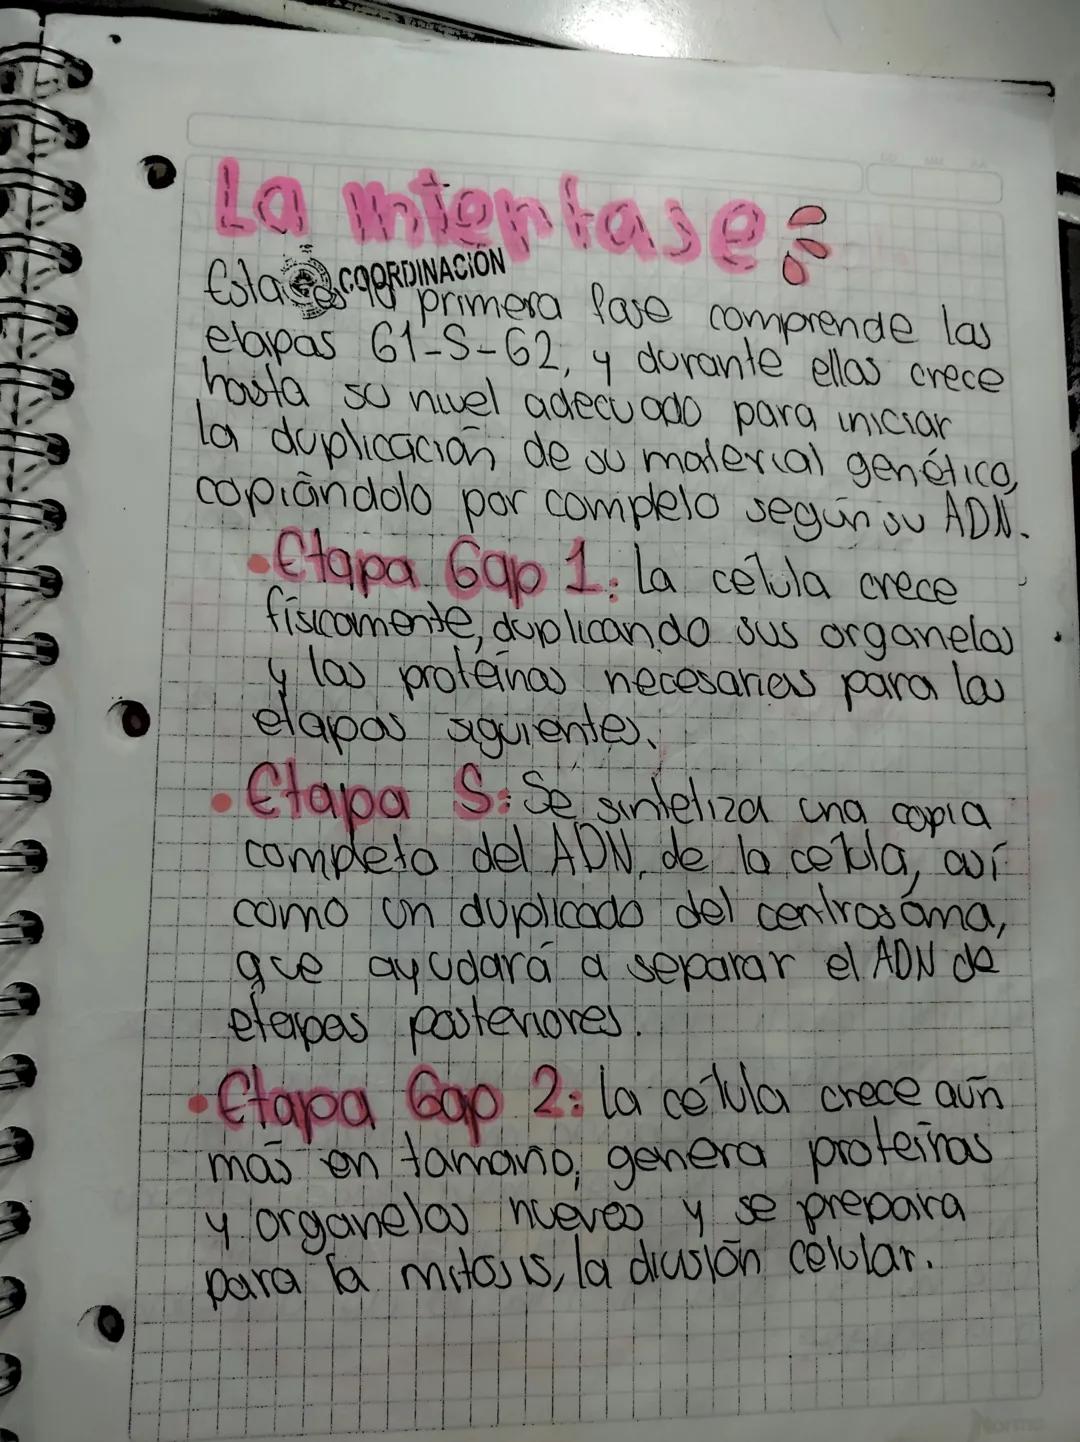 La interfase
COORDINACIÓN
Esta es la primera fase comprende las
etapas G1-S-G2, y durante ellas crece
hasta su nivel adecuado para iniciar
la duplicación de su material genético,
copiándolo por completo según su ADN.
•Etapa Gap 1: La célula crece
físicamente, duplicando sus organelos
y las proteínas necesarias para las
etapas siguientes.
•Etapa S: Se sintetiza una copia
completa del ADN, de la célula, así
como un duplicado del centrosoma,
que ayudará a separar el ADN de
etapas posteriores.
•Etapa Gap 2: la célula crece aún
más en tamaño, genera proteínas
y organelos nuevos y se prepara
para la mitosis, la división celular.
Norma